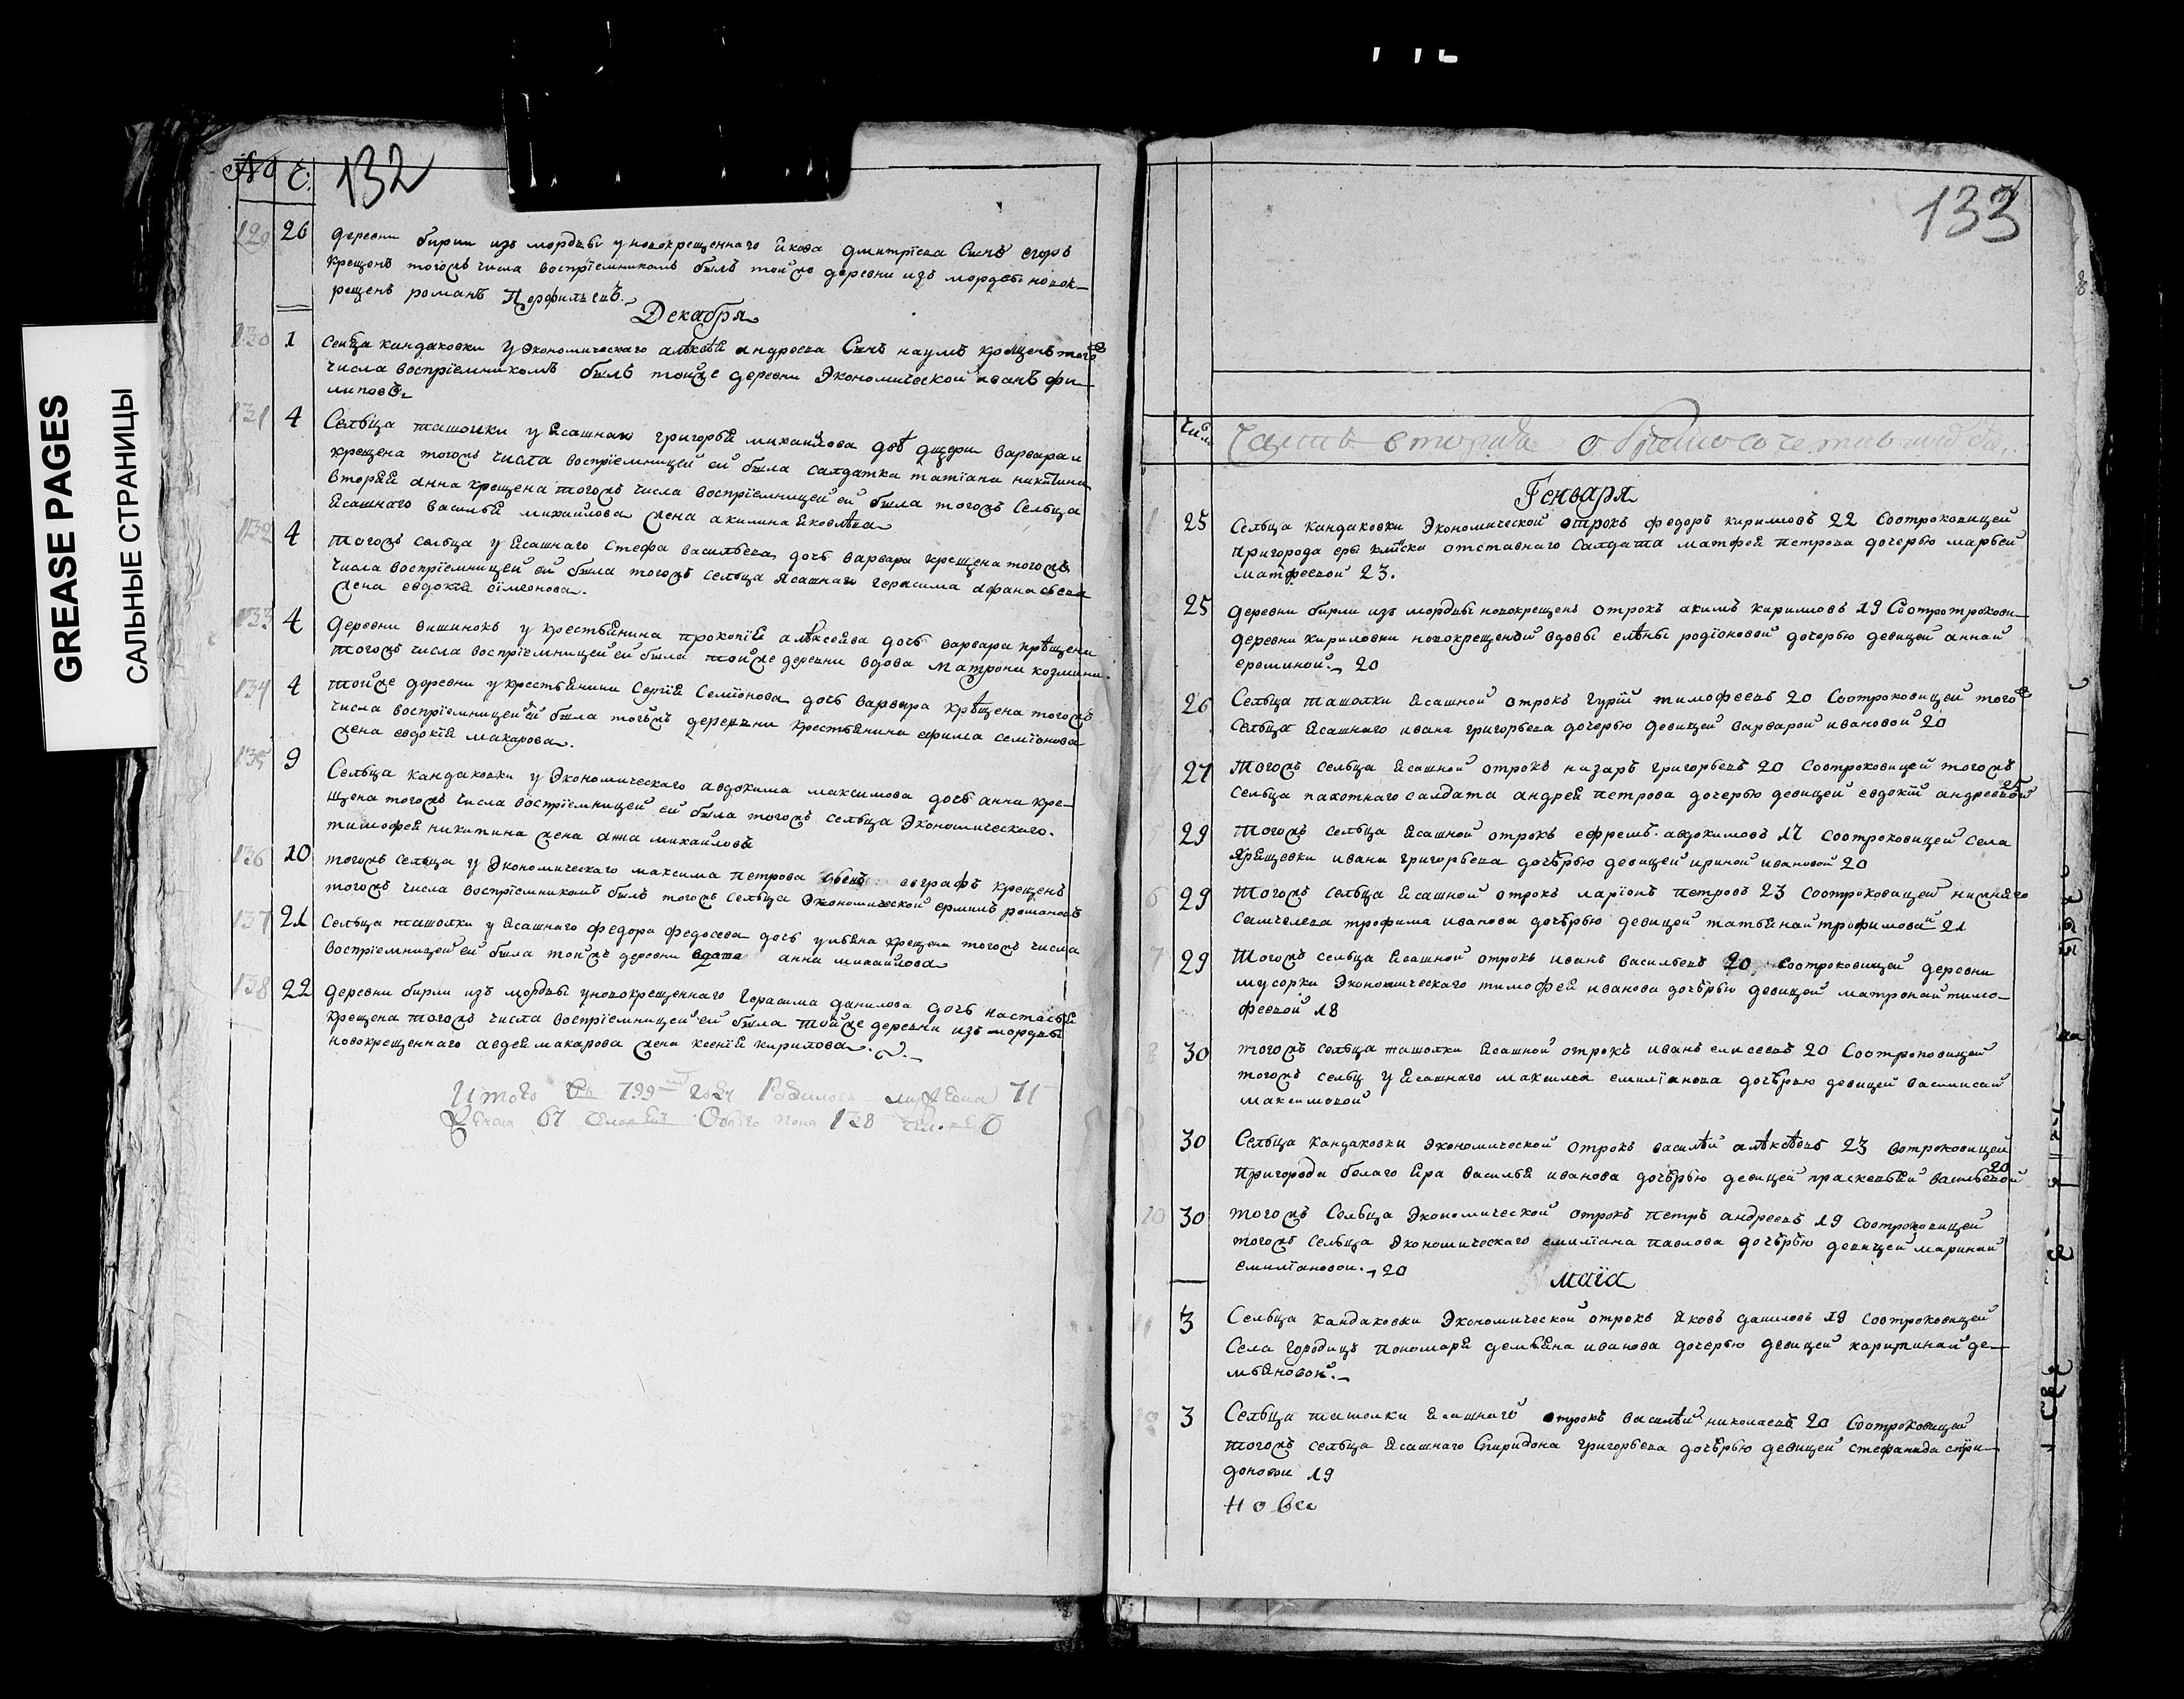 GREASE PAGES
САЛЬНЫЕ СТРАНИЦЫ
№ Ч: 132
129 26 деревни бирли изъ мордвы у новокрещеннаго Якова дмитріева Сынъ егоръ
Крещенъ тогожъ числа воспріемникомъ былъ тойже деревни изъ мордвы новок-
рещенъ романъ Перфильевъ.
Декабря
130 1 селца кандаковки У Экономическаго алѣксѣя андреева Сынъ наумъ крещенъ тогожъ
числа воспріемникомъ былъ тойже деревни Экономической иванъ фи-
липовъ
131 4 Сельца ташолки у Ясашнаго григорья михайлова двѣ дщери варвара и
крещена тогожъ числа воспріемницей ей была салдатка татіана никитина
вторая анна крещена тогожъ числа воспріемницей ей была тогожъ Сельца
Ясашнаго василья михайлова жена акилина Яковлѣва
132 4 тогожъ сельца у Ясашнаго Стефа васильева дочь варвара крещена тогожъ
числа воспріемницей ей была тогожъ сельца Ясашнаго герасима афанасьева
жена евдокія сімеонова.
133 4 деревни вишинокъ у крестьянина прокопія алѣксеива дочь варвара крѣщена
тогожъ числа воспріемницей ей была тойже деревни вдова Матрона козмина.
134 4 тойже деревни у крестьянина Сергія Семіонова дочь варвара крѣщена тогожъ
числа воспріемницей ей была тогожъ деревни крестьянина ефима семіонова
жена евдокія макарова.
135 9 Сельца кандаковки у Экономическаго авдокима максимова дочь анна кре-
щена тогожъ числа воспріемницей ей была тогожъ сельца Экономическаго.
тимофея никитина жена анна михайлова
136 10 тогожъ Сельца у Экономическаго максима петрова евграфъ крещенъ
тогожъ числа воспріемникомъ былъ тогожъ сельца Экономической ермилъ романовъ
137 21 Сельца ташолки у Ясашнаго федора федосева дочь ульяна крещена тогожъ числа
воспріемницей ей была тойжъ деревни анна михайлова
138 22 деревни бирли изъ мордвы у новокрещеннаго Герасима данилова дочь настасья
крещена тогожъ числа воспріемницей ей была тойже деревни изъ мордвы
новокрещеннаго авдея макарова жена ксенія кирилова
Итого 799 году Родилось муж. пола 71
Женска 67 Обоего пола 138
133
Часть вторая о бракосочетавшихся
Генваря
1 25 Сельца Кандаковки Экономической отрокъ федоръ кириловъ 22 Соотроковицей
пригорода еры клиска отставнаго Салдата матфея петрова дочерью марьей
матфеевой 23.
25 деревни бирли изъ мордвы новокрещенъ отрокъ акимъ кириловъ 19 Соотротрокови-
деревни Кириловки новокрещеной вдовы елѣны родіоновой дочерью девицей аннай
ереминой. 20
26 Сельца ташолки Ясашной отрокъ гурій тимофеевъ 20 Соотроковицей тогожъ
Сельца Ясашнаго ивана григорьева дочерью девицей варварой ивановой 20
4 27 Тогожъ сельца Ясашной отрокъ назаръ григорьевъ 20 Соотроковицей тогожъ
сельца пахотнаго салдата андрея петрова дочерью девицей евдокіи андреевной 25
29 тогожъ сельца Ясашной отрокъ ефремъ авдокимовъ 17 соотроковицей села
Хрящевки ивана григорьева дочѣрью девицей ириной ивановой 20
6 29 Тогожъ сельца Ясашной отрокъ ларіонъ петровъ 23 соотроковицей нижнаго
Санчелева трофима иванова дочѣрью девицей татьянай трофимовай 21
7 29 Тогожъ сельца Ясашной отрокъ иванъ васильевъ 20 Соотроковицей деревни
мусорки Экономическаго тимофея иванова дочѣрью девицей матронай тимо-
феевой 18
8 30 тогожъ сельца ташолки Ясашной отрокъ иванъ елисеевъ 20 Соотроковицей
тогожъ селъц у Ясашнаго максима емиліанова дочѣрью девицей василисай
максимовой
30 Сельца кандаковки экономической отрокъ василѣй алѣксѣевъ 23 вотроковицей
Пригорода белаго Яра василья иванова дочѣрью девицей прасковьей васильевой 20
10 30 тогожъ Сельца Экономической отрокъ петръ андреевъ 19 соотроковицей
тогожъ сельца Экономическаго емиліана павлова дочѣрью девицей маринай
емиліановой. 20
маія
11 3 Сельца Кандаковки Экономической отрокъ Яковъ даниловъ 19 соотроковицей
Села городищъ пономаря демьяна иванова дочерью девицей харитинай де-
мьяновой.
12 3 Сельца ташолки Ясашнаго отрокъ василѣй николаевъ 20 Соотроковицей
тогожъ сельца Ясашнаго Спиридона григорьева дочѣрью девицей стефанида спри-
доновой 19